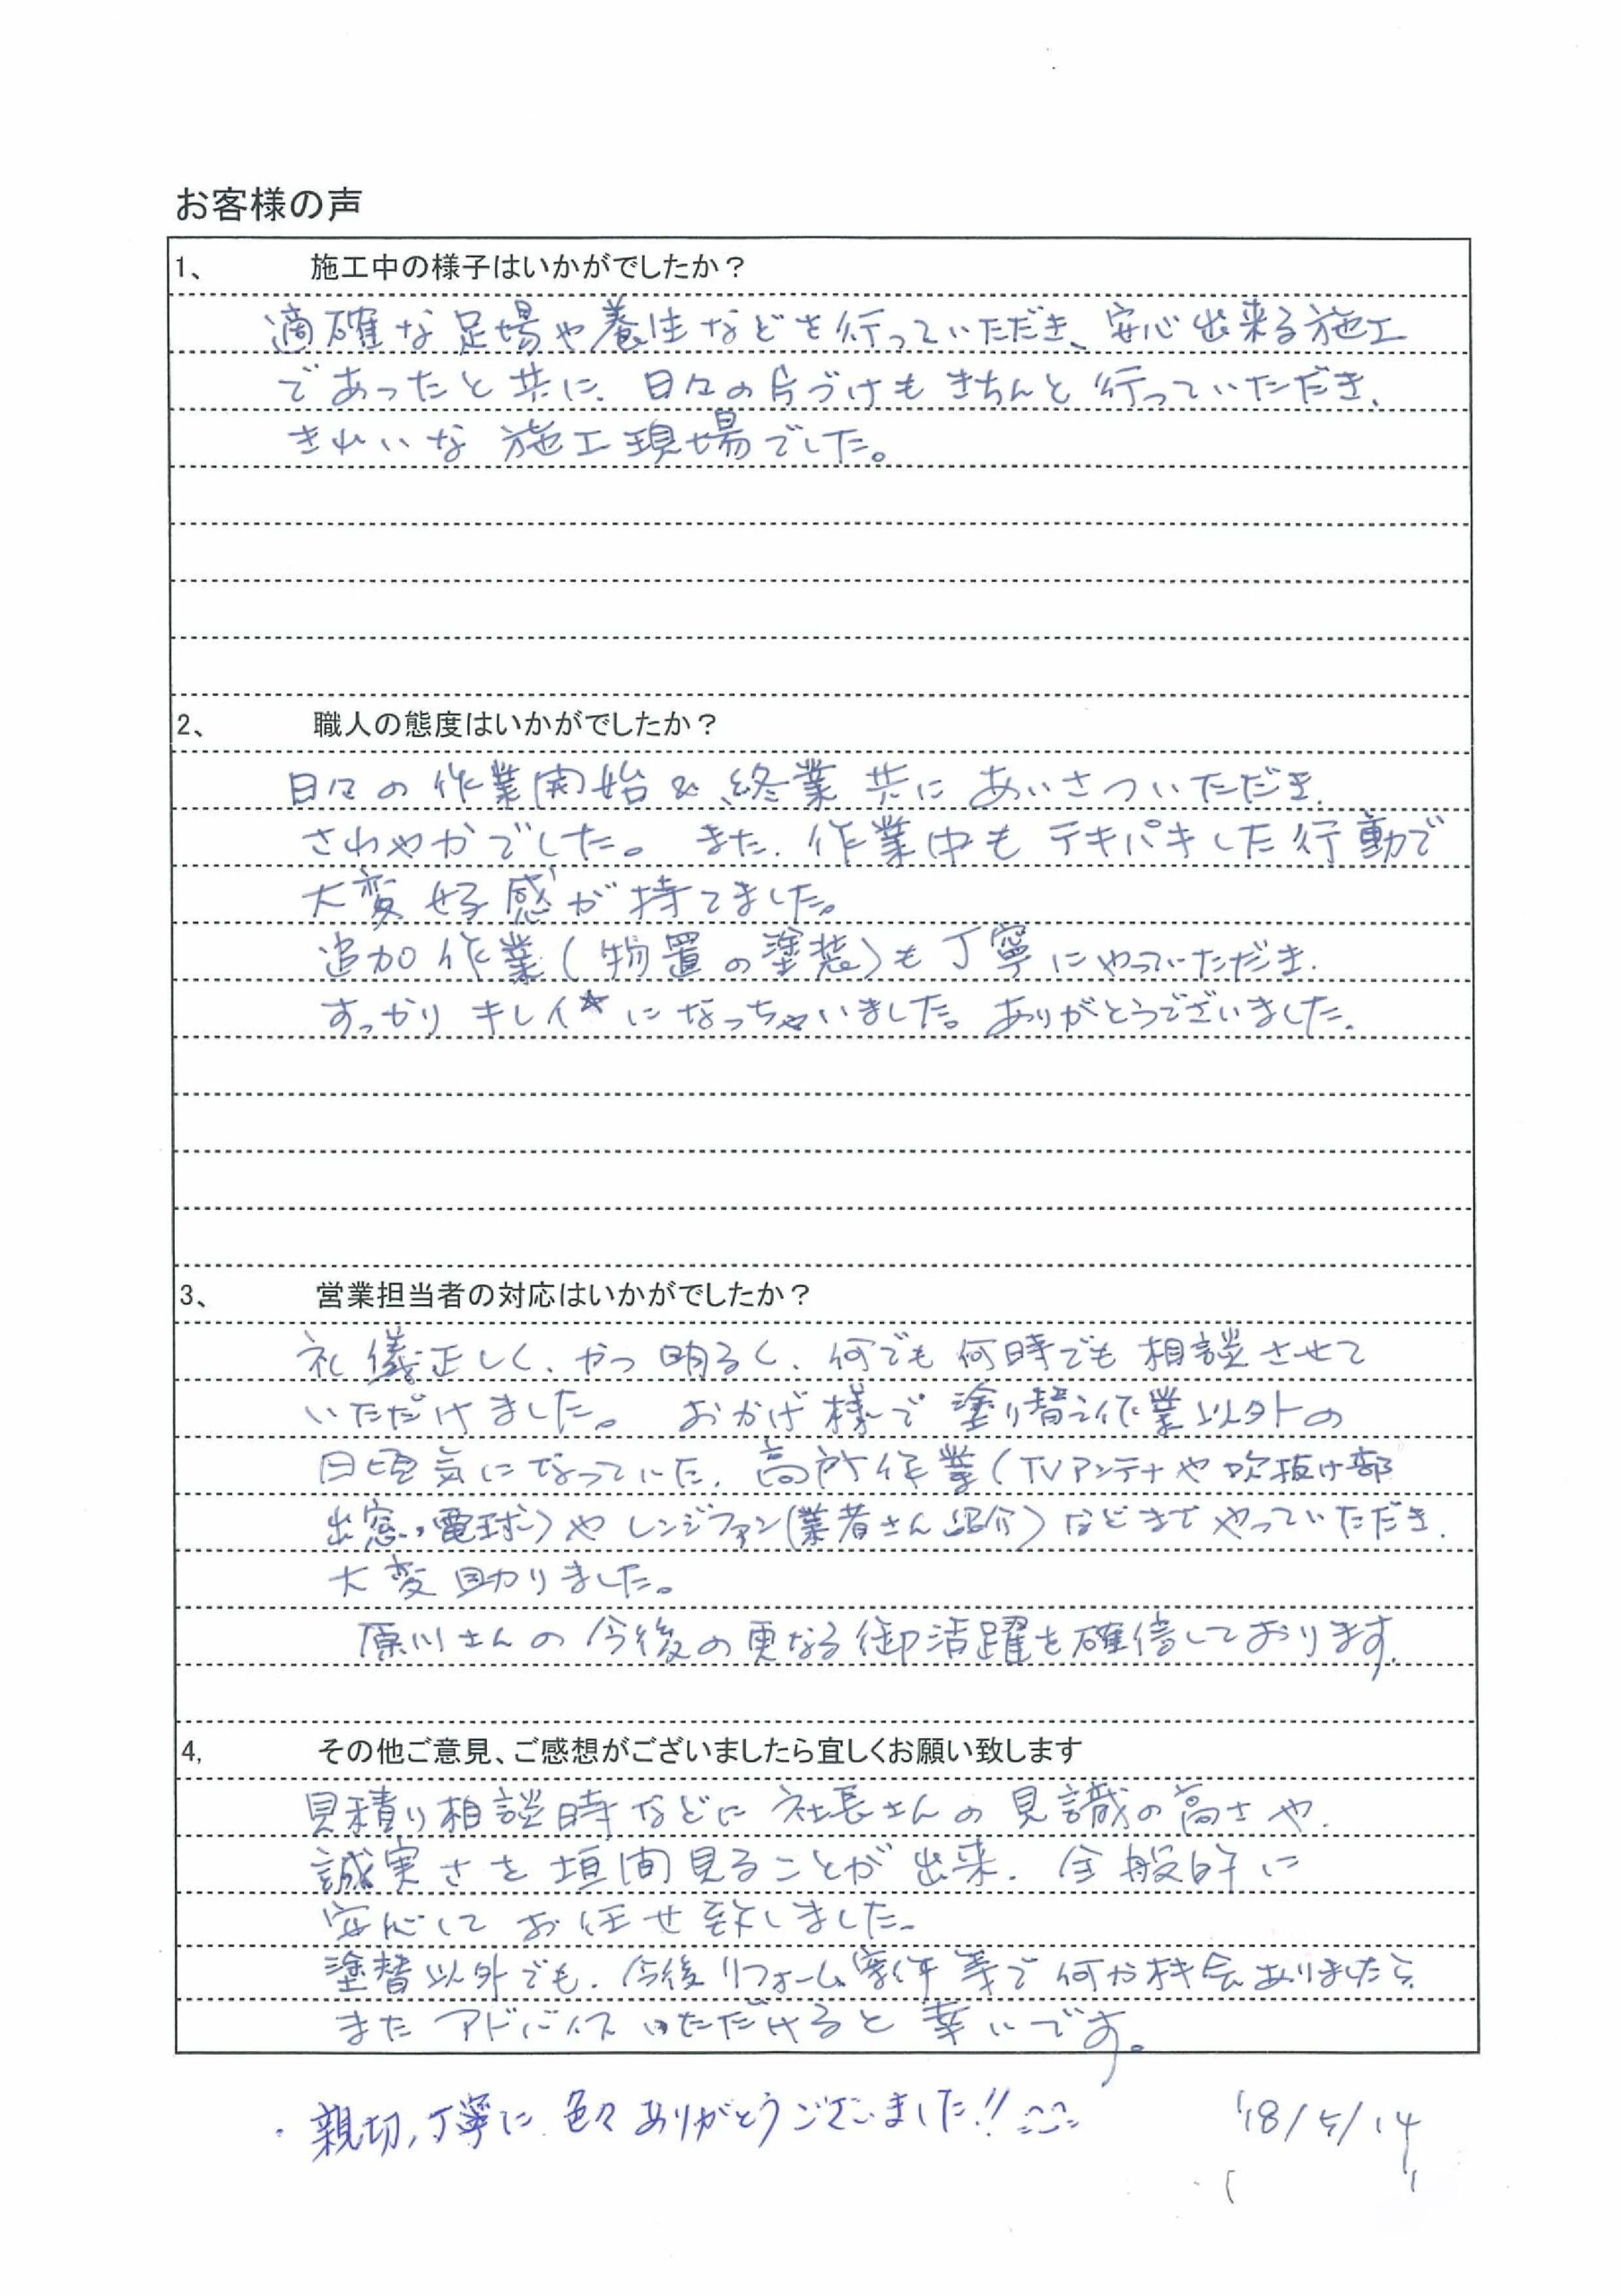 お客様の声
1、 施工中の様子はいかがでしたか？
適確な足場や養生などを行っていただき、安心出来る施工
であったと共に、日々の片づけもきちんと行っていただき、
きれいな施工現場でした。
2、 職人の態度はいかがでしたか？
日々の作業開始&終業共にあいさついただき、
さわやかでした。また、作業中もテキパキした行動で
大変好感が持てました。
追加作業(物置の塗装)も丁寧にやっていただき、
すっかりキレイ☆になっちゃいました。ありがとうございました。
3、 営業担当者の対応はいかがでしたか？
礼儀正しく、かつ明るく、何でも何時でも相談させて
いただけました。おかげ様で塗り替え作業以外の
日頃気になっていた、高所作業(TVアンテナや吹抜け部
出窓、電球)やレンジファン(業者さん紹介)などまでやっていただき、
大変助かりました。
原川さんの今後の更なる御活躍を確信しております。
4, その他ご意見、ご感想がございましたら宜しくお願い致します
見積り相談時などに社長さんの見識の高さや、
誠実さを垣間見ることが出来、全般的に
安心してお任せ致しました。
塗替以外でも、今後リフォーム案件等で何か機会ありましたら、
またアドバイスいただけると幸いです。
・親切、丁寧に色々ありがとうございました!!
'18/5/14